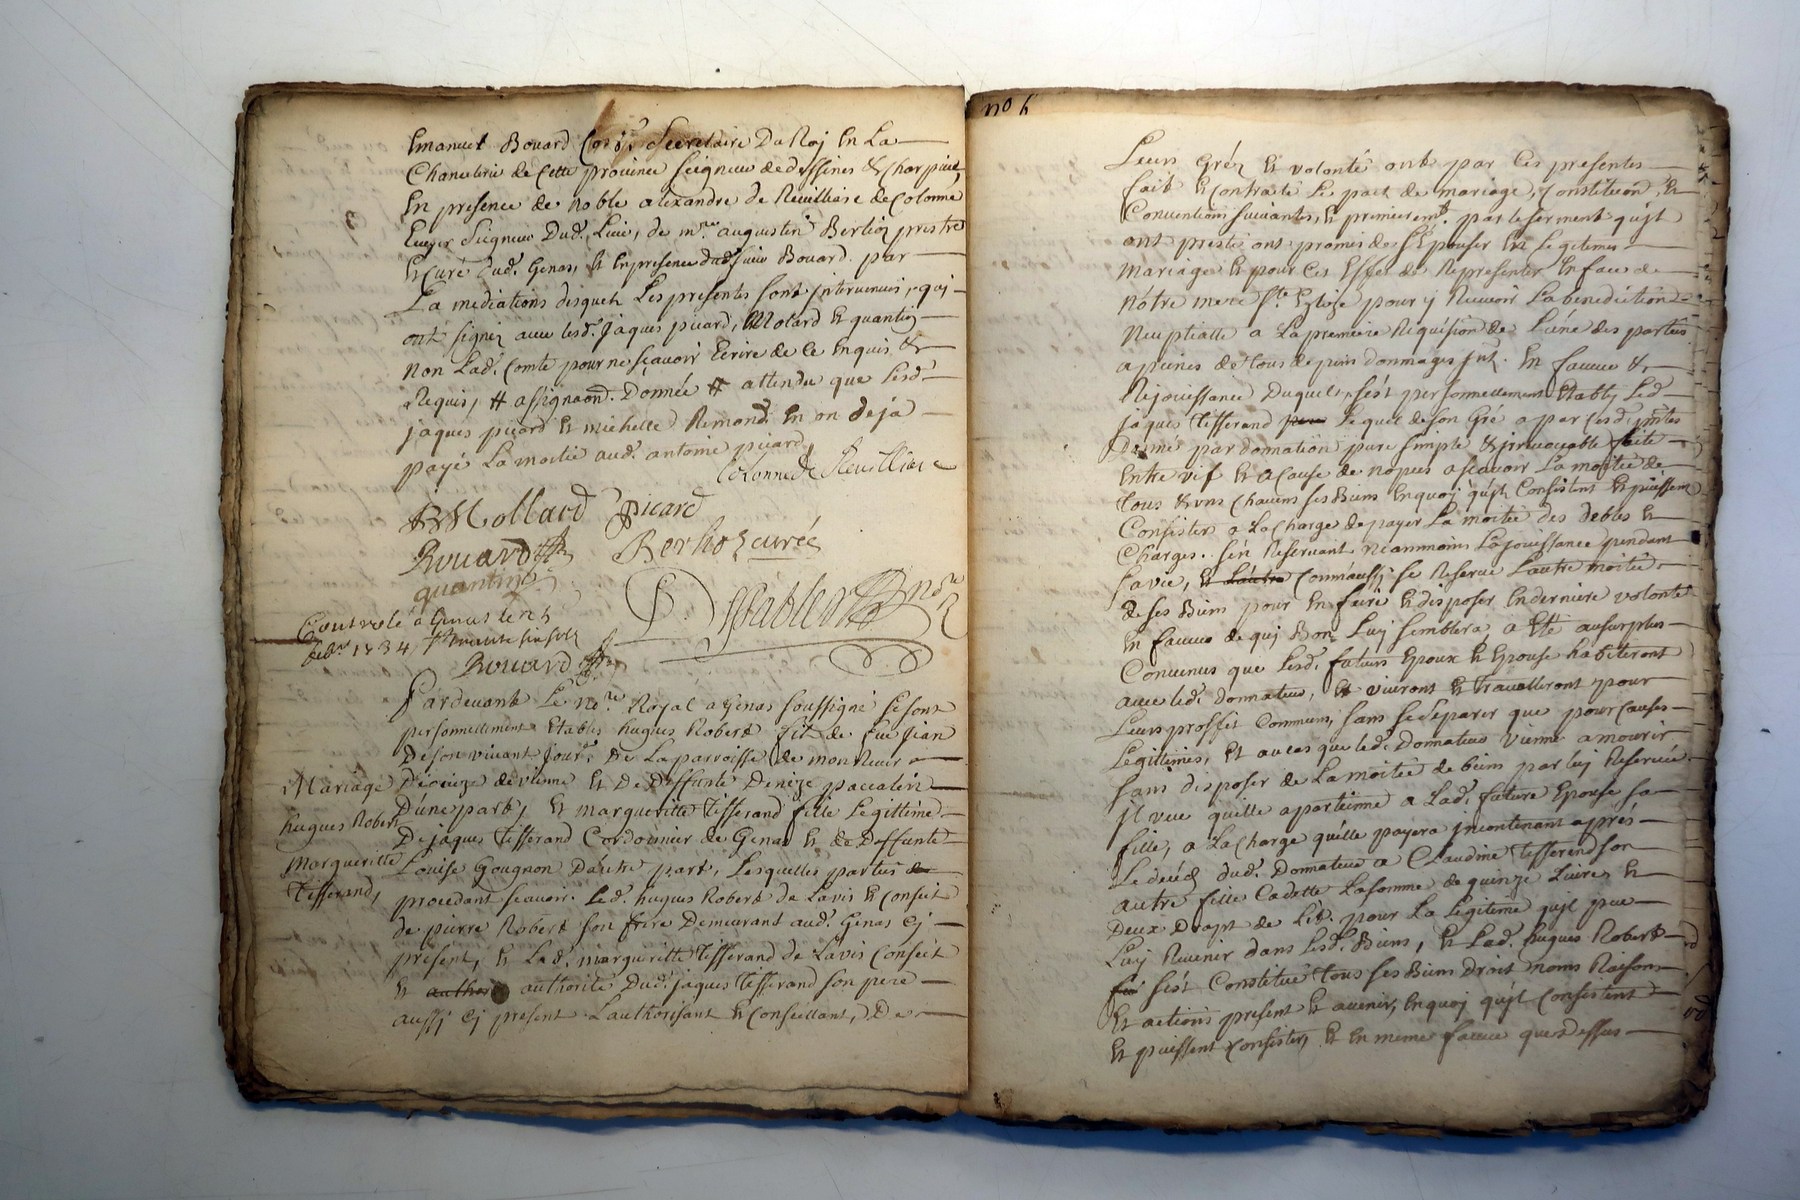 Emanuel Bouard Con.r Secretaire Du Roj En La
Chancelerie de Cette province Seigneur de dessines & charpieu,
En presence de Noble alexandre de Reuilliase de Colonne
Ecuyer Seigneur Dud. Lieu, de m.re augustin Berlioz prestre
Et Curé dud. Genas, Et En presence dud sieur Bouard. par
La mediations disquels Les presentes sont intervenues, quj
ont signéz avec lesd. Jaques picard, Molard Et quantin
Non Lad. Comte pour ne sçavoir Ecrire de ce Enquis &
Requis, # assignaon. Donnée # attendu que Lesd
jaques picard Et michelle Remond En on deja
payé La moitié aud. antoine picard,
Colonne de Reuilliase
Mollard picard
Bouard Berlioz curé
quantin
no.re
Controlé à Genas le 25
feb.er 1734
Bouard
Pardevant Le no.re Royal a Genas soussigné se sont
personnellement Etablis hugues Robert fils de feu jean
De son vivant jour.r De La parroisse de monsteur
Mariage Diocieze de vienne Et De Deffunte Denize paccalin
hugues Robert D'une part, Et margueritte Tisserand fille Legittime
De jaques Tisserand Cordonnier de Genas Et de Deffunte
Margueritte Louise Gougnon D'autre part, Lesquelles parties de
Tisserand, procedant scavoir. Led. hugues Robert de L'avis Et conseil
de pierre Robert son frere Demeurant aud. Genas Cj
present, Et Lad. margueritte Tisserand de L'avis Conseil
Et authorité Dud. jaques Tisserand son pere
aussj Cj present L'authorisant Et Conseillant, De
no 6
Leurs Gréz Et volonté ont par Ces presentes
fait Et Contraté Le pact de mariage, Constitution, Et
Conventions suivantes, Et premierem.t par le serment qu'jl
ont presté ont promis de S'Epouser En Legitime
Mariage Et pour Ces Effet de Representer En face de
Nôtre mere S.te Eglize pour y Recevoir La benediction
Neuptialle a La premiere Requision de L'une des parties
a peines de tous depens dommages Int. En faveur &
Rejouissance Duquel, s'est personnellement Etably Led
jaques Tisserand Lequel de son Gré a par Lesd. pntes
Donné par donnation pure simple & jrrevocable faite
Entre vif Et a Cause de nopces a scavoir La moitié de
tous & uns Chacuns ses Biens En quoj qu'jls Consistent Et puissent
Consister a La Charge de payer La moitié des debtes Et
Charges. s'en Reservant neanmoins La jouissance pendant
sa vie, Et L'autre Comm'aussj se Reserve L'autre moitié
de ses Biens pour En faire Et disposer En derniere volonté
En faveur de quj Bon Luy semblera, a Eté au surplus
Convenus que Lesd. futurs Epoux Et Epouse habiteront
avec led. donnateur, Et vivront Et travailleront pour
Leurs proffit Commun, sans se Separer que pour Causes
Legitimes, Et au cas que led. Donnateur vienne a mourir
sans disposer de La moitié de biens par luy Reservée
jl veut qu'elle apartienne a Lad. future Epouse sa
fille, a La Charge qu'elle payera jncontenant aprés
Le decéd dud. Donnateur a Claudine Tisserand son
autre fille Cadette La somme de quinze Livres Et
Deux Draps de Lit pour La Legitime qu'jl peu
Luy Revenir dans Lesd. Biens, Et Lad. hugues Robert
s'est Constitué tous ses Biens Droit noms Raisons
Et actions present Et avenir, En quoj qu'jl Consistent
Et puissent Consister, Et En meme faveur que dessus